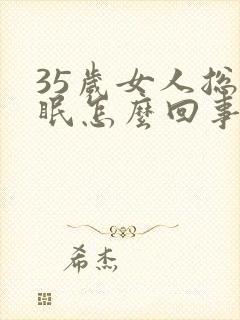 35歲女人總
眠怎麼回事
希杰